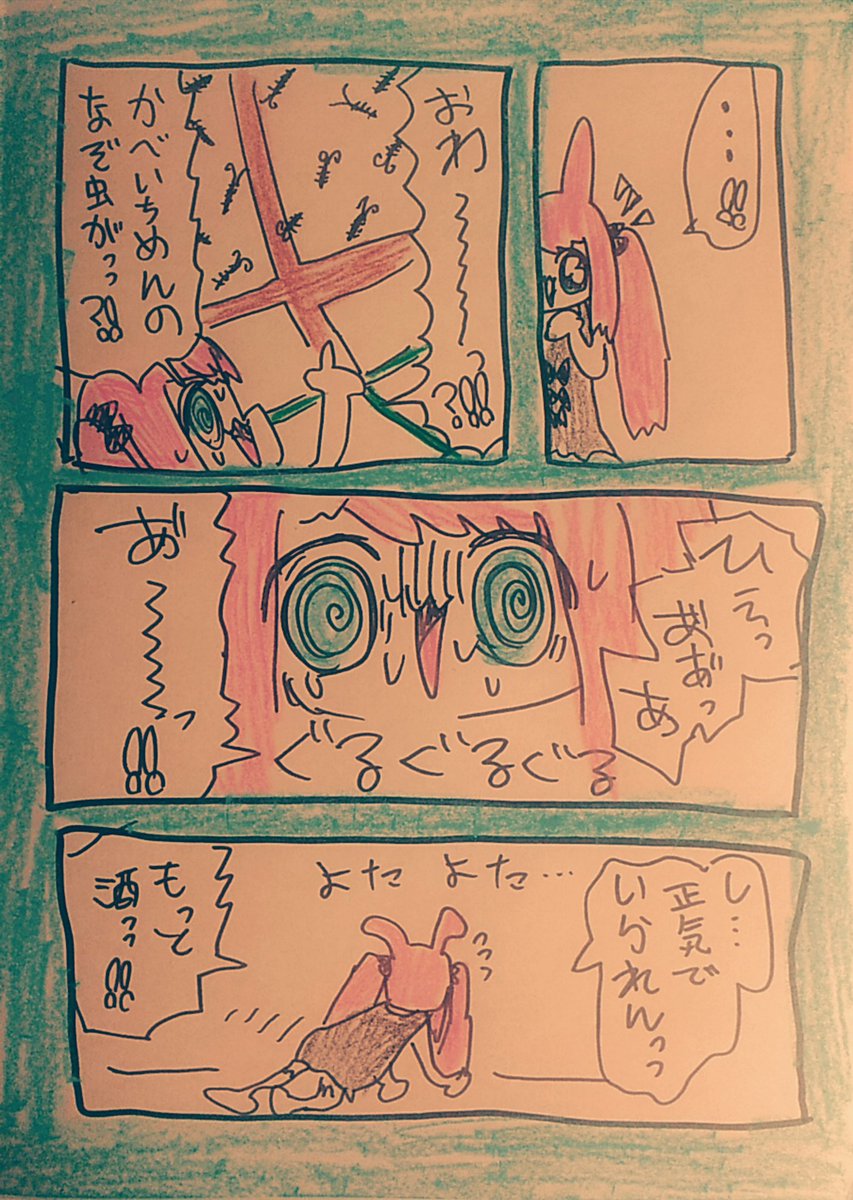 ・・・!!
おわ〜〜〜〜っ?!!!
かべいちめんの
なぞ虫がっっ?!!
ひえっ
あ゛あ゛っ
あ
ぐるぐるぐる
あ゛〜〜〜〜っ!!
し…
正気で
いられんっっ
よた よた…
もっと
酒っっ!!